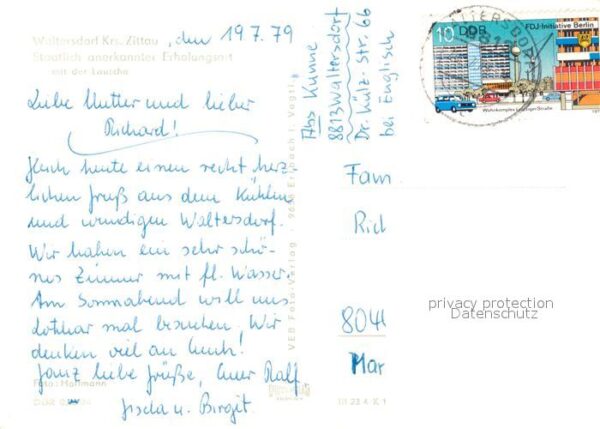 Waltersdorf Krs. Zittau
Staatlich anerkannter Erholungsort
mit der Lausche
, den 19.7.79
Liebe Mutter und lieber
Richard!
Euch heute einen recht herz-
lichen Gruß aus dem kühlen
und windigen Waltersdorf.
Wir haben ein sehr schö-
nes Zimmer mit fl. Wasser.
Am Sonnabend will uns
Lothar mal besuchen. Wir
denken viel an Euch!
Ganz liebe Grüße, Euer Ralf
Gisela u. Birgit.
Foto: Hoffmann
VEB Foto-Verlag · 9656 Erlbach i. Vogtl.
III 23 4 K 1
Abs Kunne
8813 Waltersdorf
Dr. Külz-Str. 66
bei Englisch
10 DDR
FDJ-Initiative Berlin
Wohnkomplex Leipziger Straße
WALTERSDORF
Fam
Rich
8044
Mar
privacy protection
Datenschutz